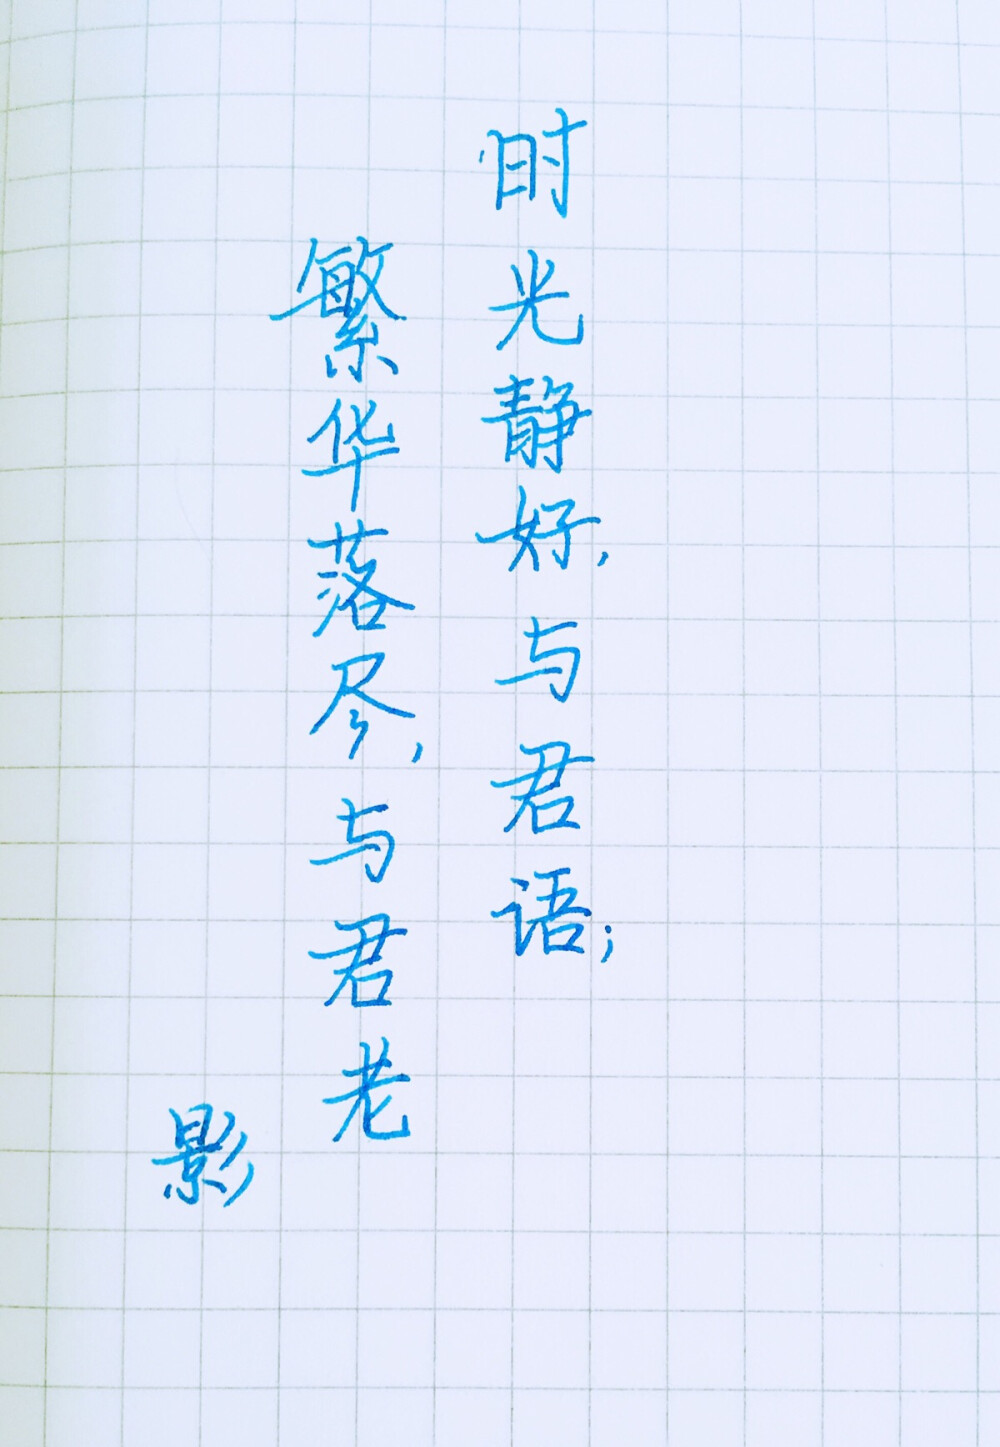 时光静好,与君语;
繁华落尽,与君老
影